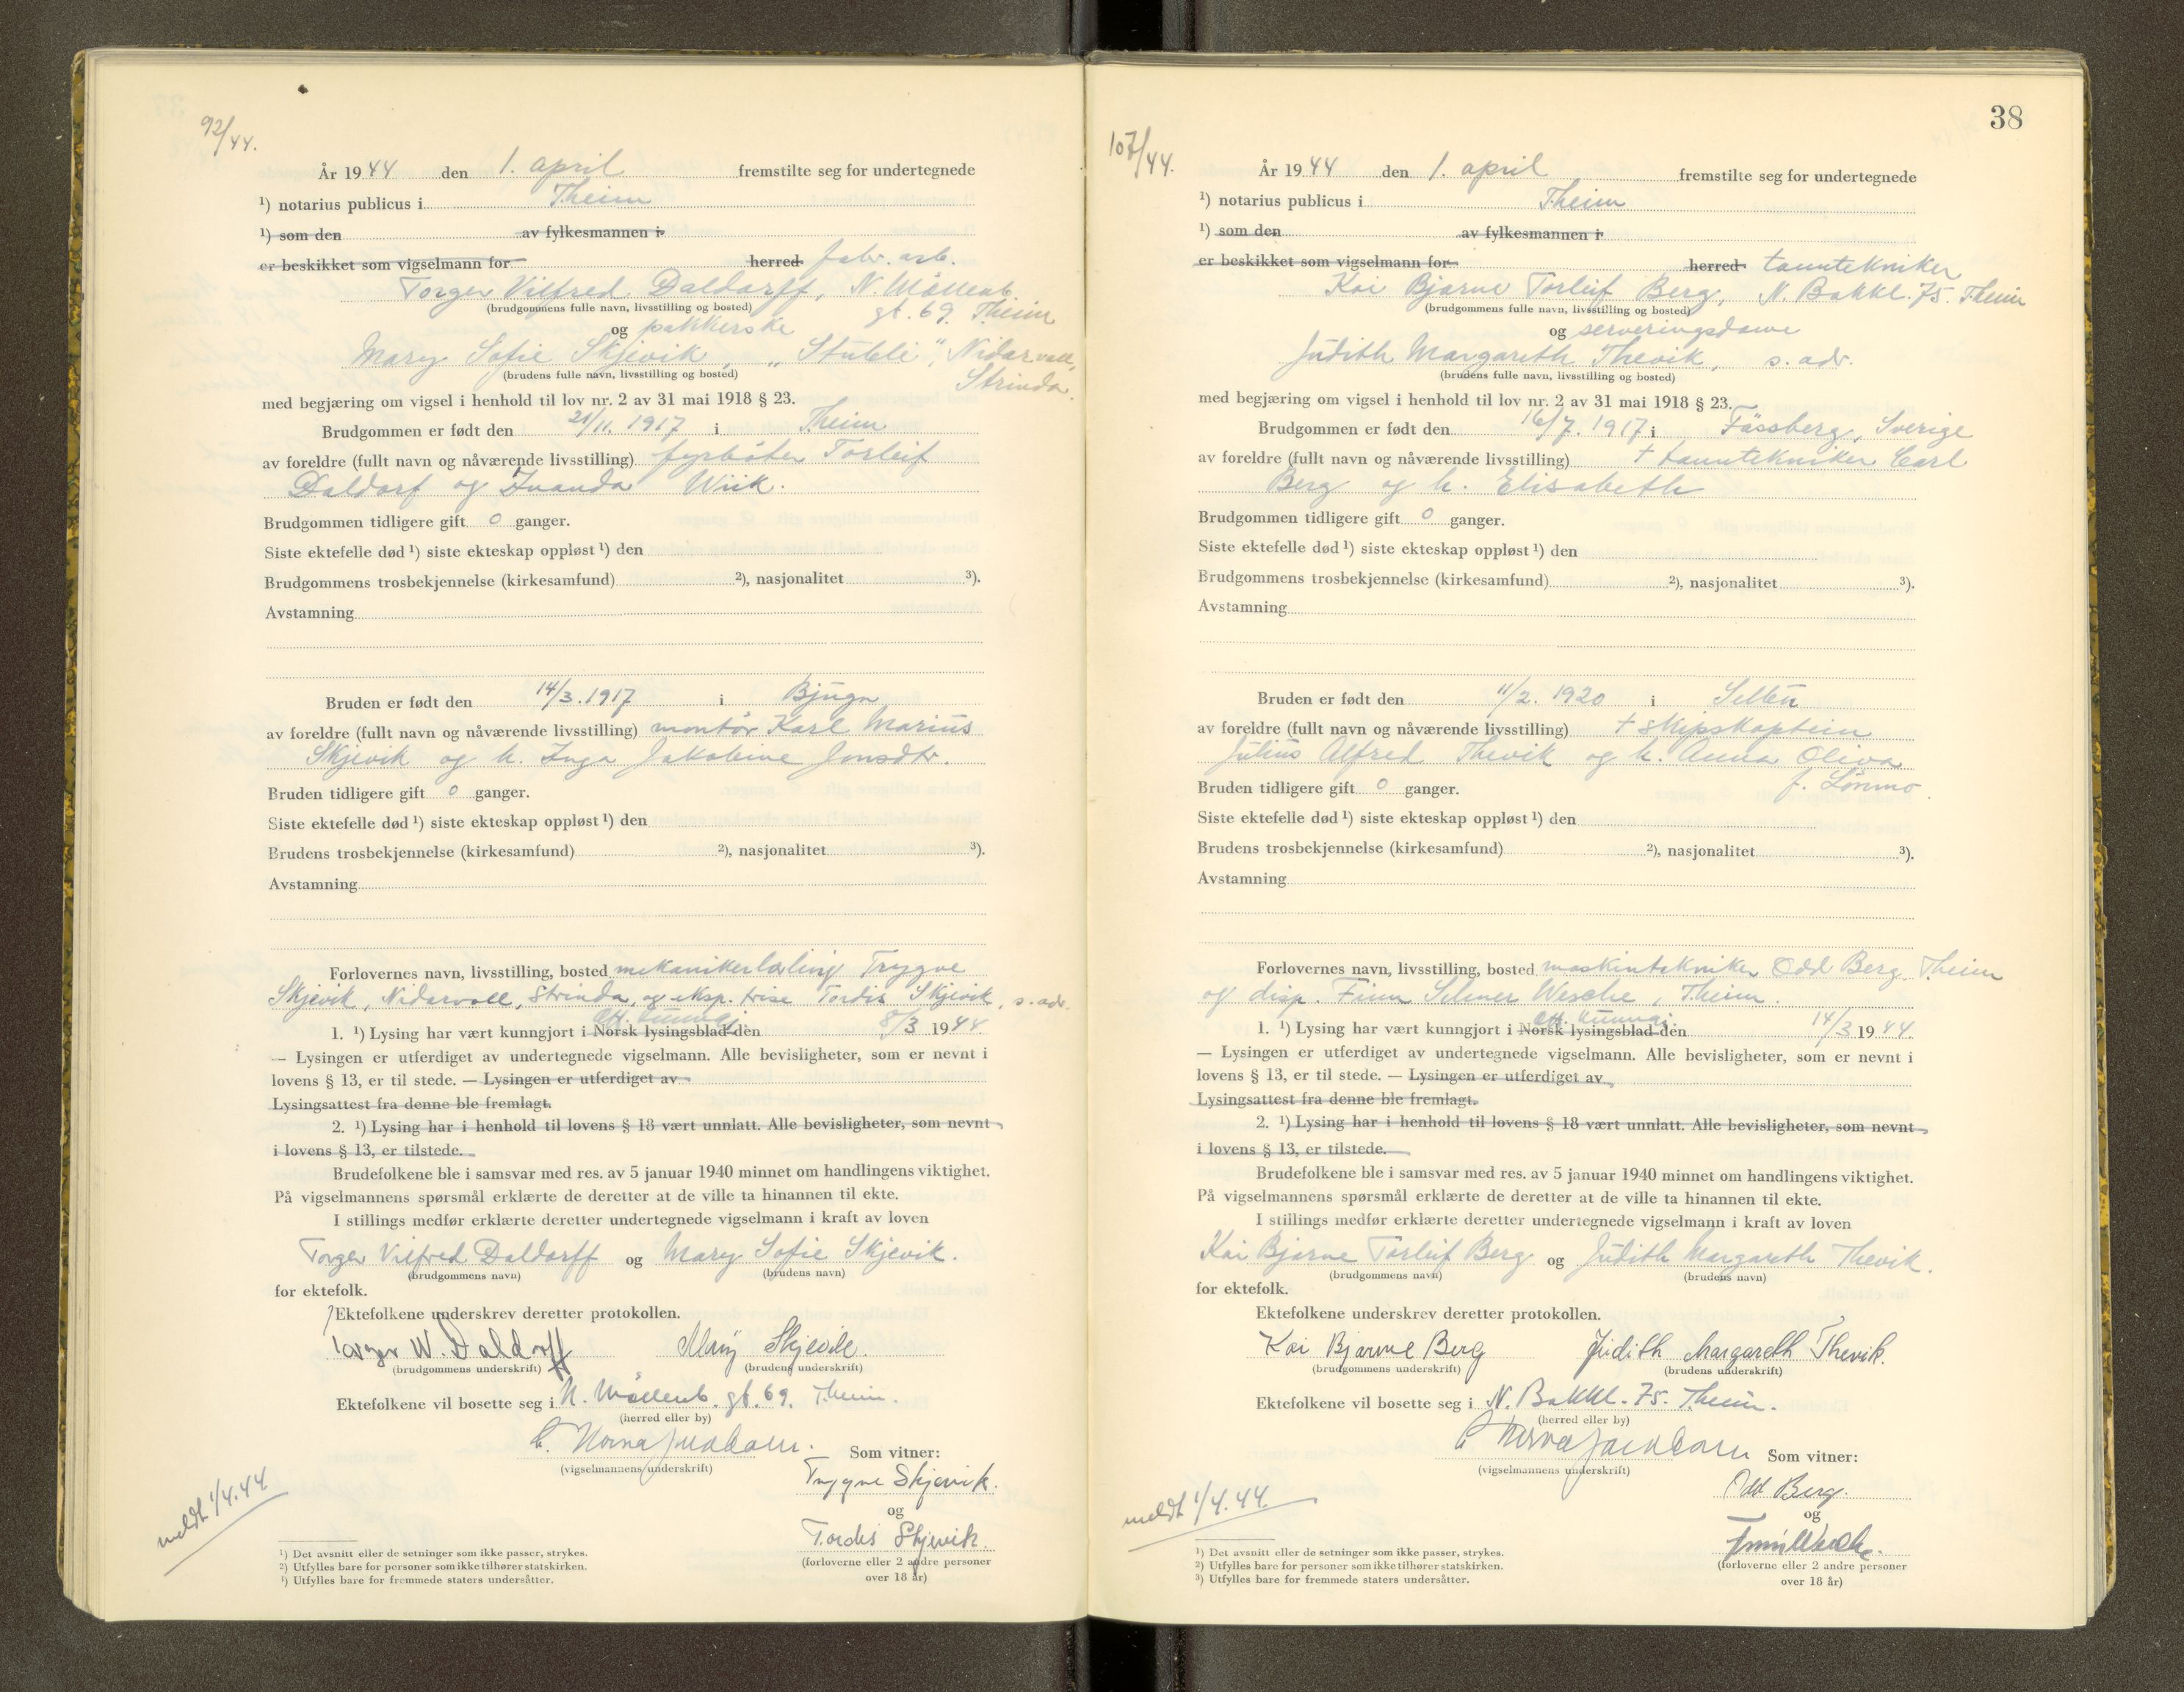 92/44.
År 1944 den 1. april fremstilte seg for undertegnede
¹) notarius publicus i Theim
¹) som den av fylkesmannen i
er beskikket som vigselmann for herred fabr. arb.
Torger Vilfred Daldorff, N. Möllenb.
(brudgommens fulle navn, livsstilling og bosted) gt. 69. Theim
og pakkerske
Mary Sofie Skjevik, „Stubli", Nidarvoll,
(brudens fulle navn, livsstilling og bosted) Strinda.
med begjæring om vigsel i henhold til lov nr. 2 av 31 mai 1918 § 23.
Brudgommen er født den 21/11. 1917 i Theim
av foreldre (fullt navn og nåværende livsstilling) fyrböter Torleif
Daldorf og Ivanda Wiik.
Brudgommen tidligere gift 0 ganger.
Siste ektefelle død ¹) siste ekteskap oppløst ¹) den
Brudgommens trosbekjennelse (kirkesamfund) ²), nasjonalitet ³).
Avstamning
Bruden er født den 14/3. 1917 i Bjugn
av foreldre (fullt navn og nåværende livsstilling) montör Karl Marius
Skjevik og h. Inga Jakobine Jonsdtr.
Bruden tidligere gift 0 ganger.
Siste ektefelle død ¹) siste ekteskap oppløst ¹) den
Brudens trosbekjennelse (kirkesamfund) ²), nasjonalitet ³).
Avstamning
Forlovernes navn, livsstilling, bosted mekanikerlærling Trygve
Skjevik, Nidarvoll, Strinda, og eksp. trise Tordis Skjevik, s. adr.
off. kunngj.
1. ¹) Lysing har vært kunngjort i Norsk lysingsblad den 8/3 1944.
— Lysingen er utferdiget av undertegnede vigselmann. Alle bevisligheter, som er nevnt i
lovens § 13, er til stede. — Lysingen er utferdiget av
Lysingsattest fra denne ble fremlagt.
2. ¹) Lysing har i henhold til lovens § 18 vært unnlatt. Alle bevisligheter, som nevnt
i lovens § 13, er tilstede.
Brudefolkene ble i samsvar med res. av 5 januar 1940 minnet om handlingens viktighet.
På vigselmannens spørsmål erklærte de deretter at de ville ta hinannen til ekte.
I stillings medfør erklærte deretter undertegnede vigselmann i kraft av loven
Torger Vilfred Daldorff og Mary Sofie Skjevik.
(brudgommens navn) (brudens navn)
for ektefolk.
Ektefolkene underskrev deretter protokollen.
Torger W. Daldorff Mary Skjevik
(brudgommens underskrift) (brudens underskrift)
Ektefolkene vil bosette seg i N. Möllenb. gt. 69. Theim.
(herred eller by)
Som vitner:
(vigselmannens underskrift)
Trygve Skjevik.
og
Tordis Skjevik.
(forloverne eller 2 andre personer
over 18 år)
meldt 1/4. 44
¹) Det avsnitt eller de setninger som ikke passer, strykes.
²) Utfylles bare for personer som ikke tilhører statskirken.
¹) Utfylles bare for fremmede staters undersåtter.
38
107/44.
År 1944 den 1. april fremstilte seg for undertegnede
¹) notarius publicus i Theim
¹) som den av fylkesmannen i
er beskikket som vigselmann for herred tanntekniker
Kai Bjarne Torleif Berg, N. Bakkl. 75. Theim
(brudgommens fulle navn, livsstilling og bosted)
og serveringsdame
Judith Margareth Thevik, s. adr.
(brudens fulle navn, livsstilling og bosted)
med begjæring om vigsel i henhold til lov nr. 2 av 31 mai 1918 § 23.
Brudgommen er født den 16/7. 1917 i Fässberg, Sverige
av foreldre (fullt navn og nåværende livsstilling) † tanntekniker Carl
Berg og h. Elisabeth
Brudgommen tidligere gift 0 ganger.
Siste ektefelle død ¹) siste ekteskap oppløst ¹) den
Brudgommens trosbekjennelse (kirkesamfund) ²), nasjonalitet ³).
Avstamning
Bruden er født den 11/2. 1920 i
av foreldre (fullt navn og nåværende livsstilling) † skipskaptein
Julius Alfred Thevik og h. Anna Oliva
f. Lönmo.
Bruden tidligere gift 0 ganger.
Siste ektefelle død ¹) siste ekteskap oppløst ¹) den
Brudens trosbekjennelse (kirkesamfund) ²), nasjonalitet ³).
Avstamning
Forlovernes navn, livsstilling, bosted maskintekniker Odd Berg. Theim
og disp. Finn Selmer Wesche, Theim.
off. kunngj.
1. ¹) Lysing har vært kunngjort i Norsk lysingsblad den 14/3 1944.
— Lysingen er utferdiget av undertegnede vigselmann. Alle bevisligheter, som er nevnt i
lovens § 13, er til stede. — Lysingen er utferdiget av
Lysingsattest fra denne ble fremlagt.
2. ¹) Lysing har i henhold til lovens § 18 vært unnlatt. Alle bevisligheter, som nevnt
i lovens § 13, er tilstede.
Brudefolkene ble i samsvar med res. av 5 januar 1940 minnet om handlingens viktighet.
På vigselmannens spørsmål erklærte de deretter at de ville ta hinannen til ekte.
I stillings medfør erklærte deretter undertegnede vigselmann i kraft av loven
Kai Bjarne Torleif Berg og Judith Margareth Thevik.
(brudgommens navn) (brudens navn)
for ektefolk.
Ektefolkene underskrev deretter protokollen.
Kai Bjarne Berg Judith Margareth Thevik.
(brudgommens underskrift) (brudens underskrift)
Ektefolkene vil bosette seg i N. Bakkl. 75. Theim.
(herred eller by)
Som vitner:
(vigselmannens underskrift)
Odd Berg.
og
Finn Wesche.
(forloverne eller 2 andre personer
over 18 år)
meldt 1/4. 44.
¹) Det avsnitt eller de setninger som ikke passer, strykes.
²) Utfylles bare for personer som ikke tilhører statskirken.
³) Utfylles bare for fremmede staters undersåtter.